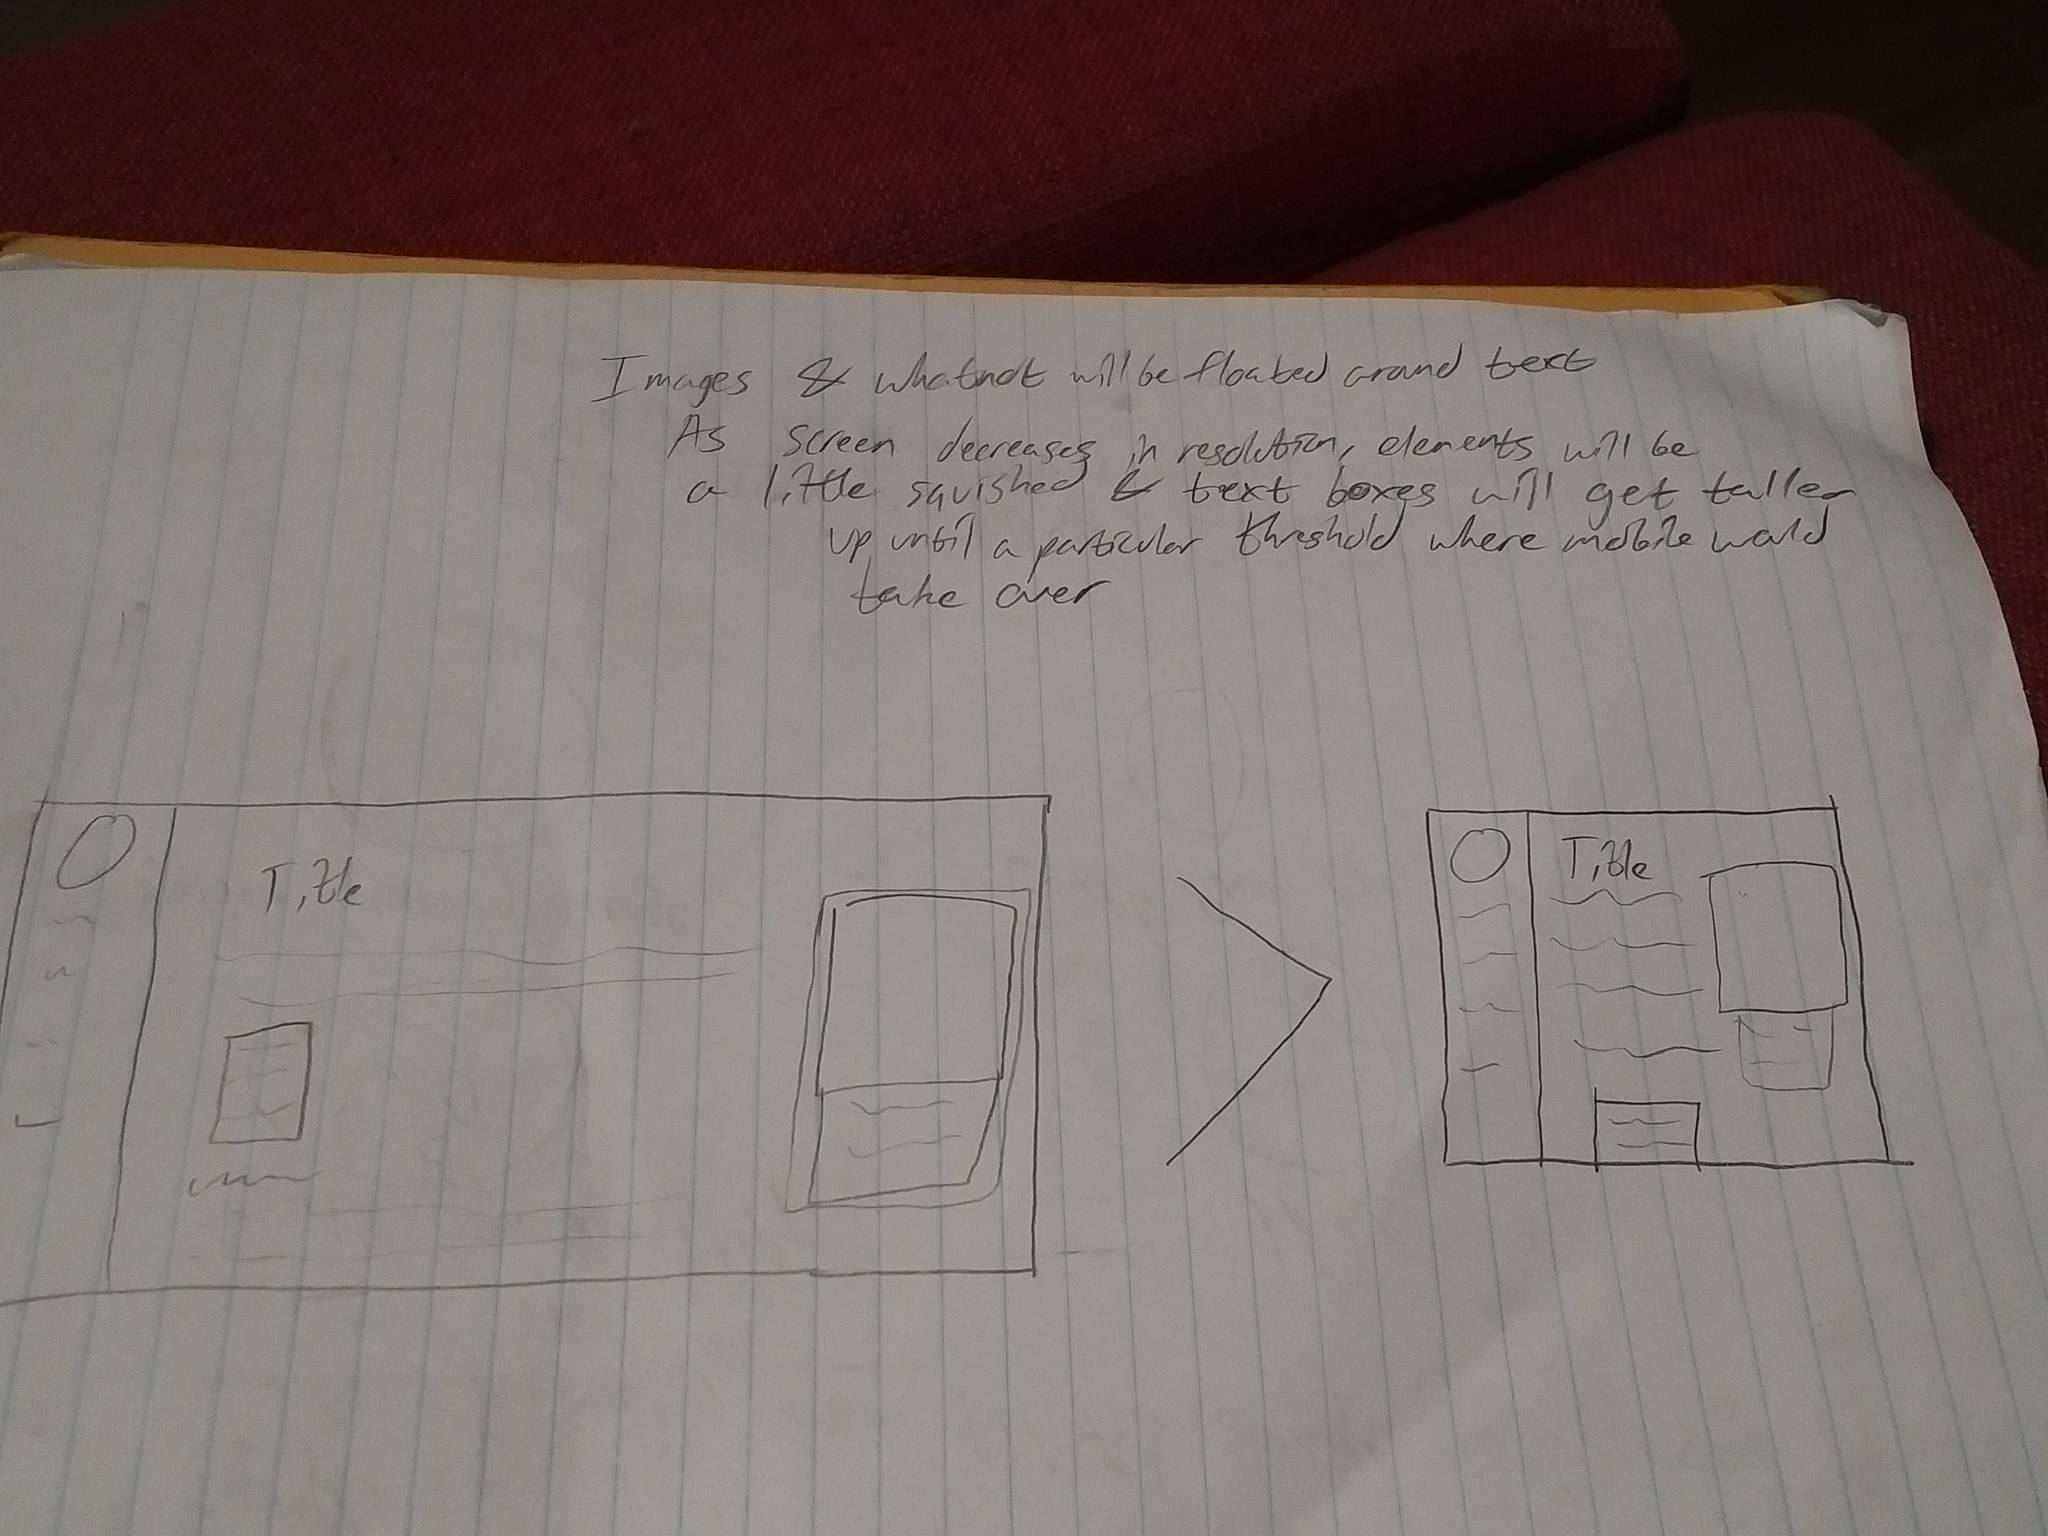 Images & whatnot will be floated around text
As screen decreases in resolution, elements will be
a little squished & text boxes will get taller
up until a particular threshold where mobile would
take over
Title
Title